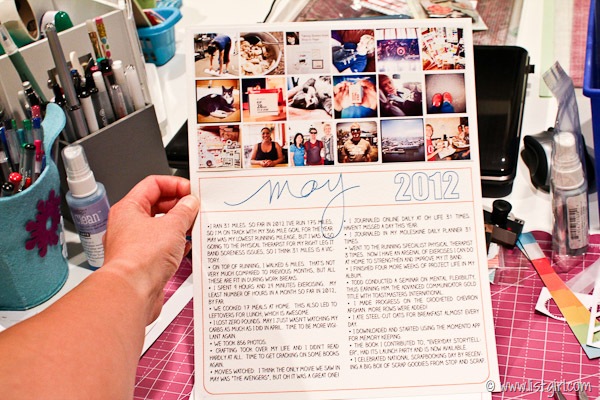 may 2012
• I RAN 31 MILES. SO FAR IN 2012, I'VE RUN 175 MILES,
SO I'M ON TRACK WITH MY 366 MILE GOAL FOR THE YEAR.
MAY WAS MY LOWEST RUNNING MILEAGE, BUT I WAS
GOING TO THE PHYSICAL THERAPIST FOR MY RIGHT LEG IT
BAND SORENESS ISSUES, SO I THINK 31 MILES IS A VIC-
TORY.
• ON TOP OF RUNNING, I WALKED 6 MILES. THAT'S NOT
VERY MUCH COMPARED TO PREVIOUS MONTHS, BUT ALL
THESE ARE FIT IN DURING WORK BREAKS.
• I SPENT 9 HOURS AND 29 MINUTES EXERCISING. MY
LEAST NUMBER OF HOURS IN A MONTH SO FAR IN 2012,
BY FAR.
• WE COOKED 17 MEALS AT HOME. THIS ALSO LED TO
LEFTOVERS FOR LUNCH, WHICH IS AWESOME.
• I LOST ZERO POUNDS. MAY I JUST WASN'T WATCHING MY
CARBS AS MUCH AS I DID IN APRIL. TIME TO BE MORE VIGI-
LANT AGAIN.
• WE TOOK 856 PHOTOS.
• CRAFTING TOOK OVER MY LIFE AND I DIDN'T READ
HARDLY AT ALL. TIME TO GET CRACKING ON SOME BOOKS
AGAIN.
• MOVIES WATCHED: I THINK THE ONLY MOVIE WE SAW IN
MAY WAS "THE AVENGERS", BUT OH IT WAS A GREAT ONE!
• I JOURNALED ONLINE DAILY AT OH LIFE 31 TIMES.
HAVEN'T MISSED A DAY THIS YEAR.
• I JOURNALED IN MY MOLESKINE DAILY PLANNER 31
TIMES.
• WENT TO THE RUNNING SPECIALIST PHYSICAL THERAPIST
3 TIMES. NOW I HAVE AN ARSENAL OF EXERCISES I CAN DO
AT HOME TO STRENGTHEN AND IMPROVE MY IT BAND.
• I FINISHED FOUR MORE WEEKS OF PROJECT LIFE IN MY
ALBUM.
• TODD CONDUCTED A SEMINAR ON MENTAL FLEXIBILITY,
THUS EARNING HIM THE ADVANCED COMMUNICATOR GOLD
TITLE WITH TOASTMASTERS INTERNATIONAL.
• I MADE PROGRESS ON THE CROCHETED CHEVRON
AFGHAN. MORE ROWS WERE ADDED!
• I ATE STEEL CUT OATS FOR BREAKFAST ALMOST EVERY
DAY.
• I DOWNLOADED AND STARTED USING THE MOMENTO APP
FOR MEMORY KEEPING.
• THE BOOK I CONTRIBUTED TO, "EVERYDAY STORYTELL-
ER", HAD ITS LAUNCH PARTY AND IS NOW AVAILABLE.
• I CELEBRATED NATIONAL SCRAPBOOKING DAY BY RECEIV-
ING A BIG BOX OF SCRAP GOODIES FROM STOP AND SCRAP
© www.listgirl.com